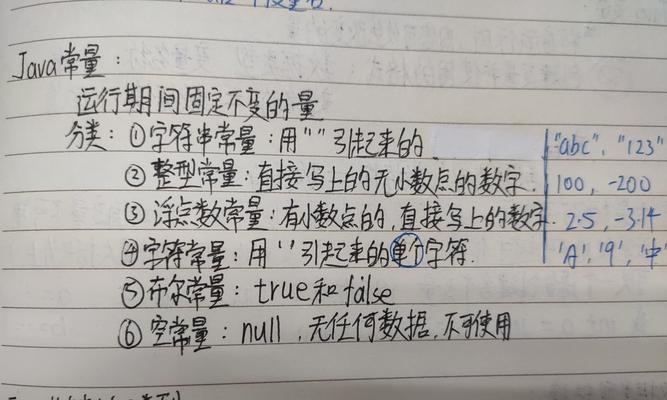 Java常量：
运行期间固定不变的量
分类：①字符串常量：用""引起来的 "abc"，"123"
②整型常量：直接写上的无小数点的数字. 100，-200
③浮点数常量：有小数点的，直接写上的数字. 2.5，-3.14
④字符常量：用''引起来的单个字符. 'A'，'9'，'中'
⑤布尔常量：true和false
⑥空常量：null，无任何数据，不可使用